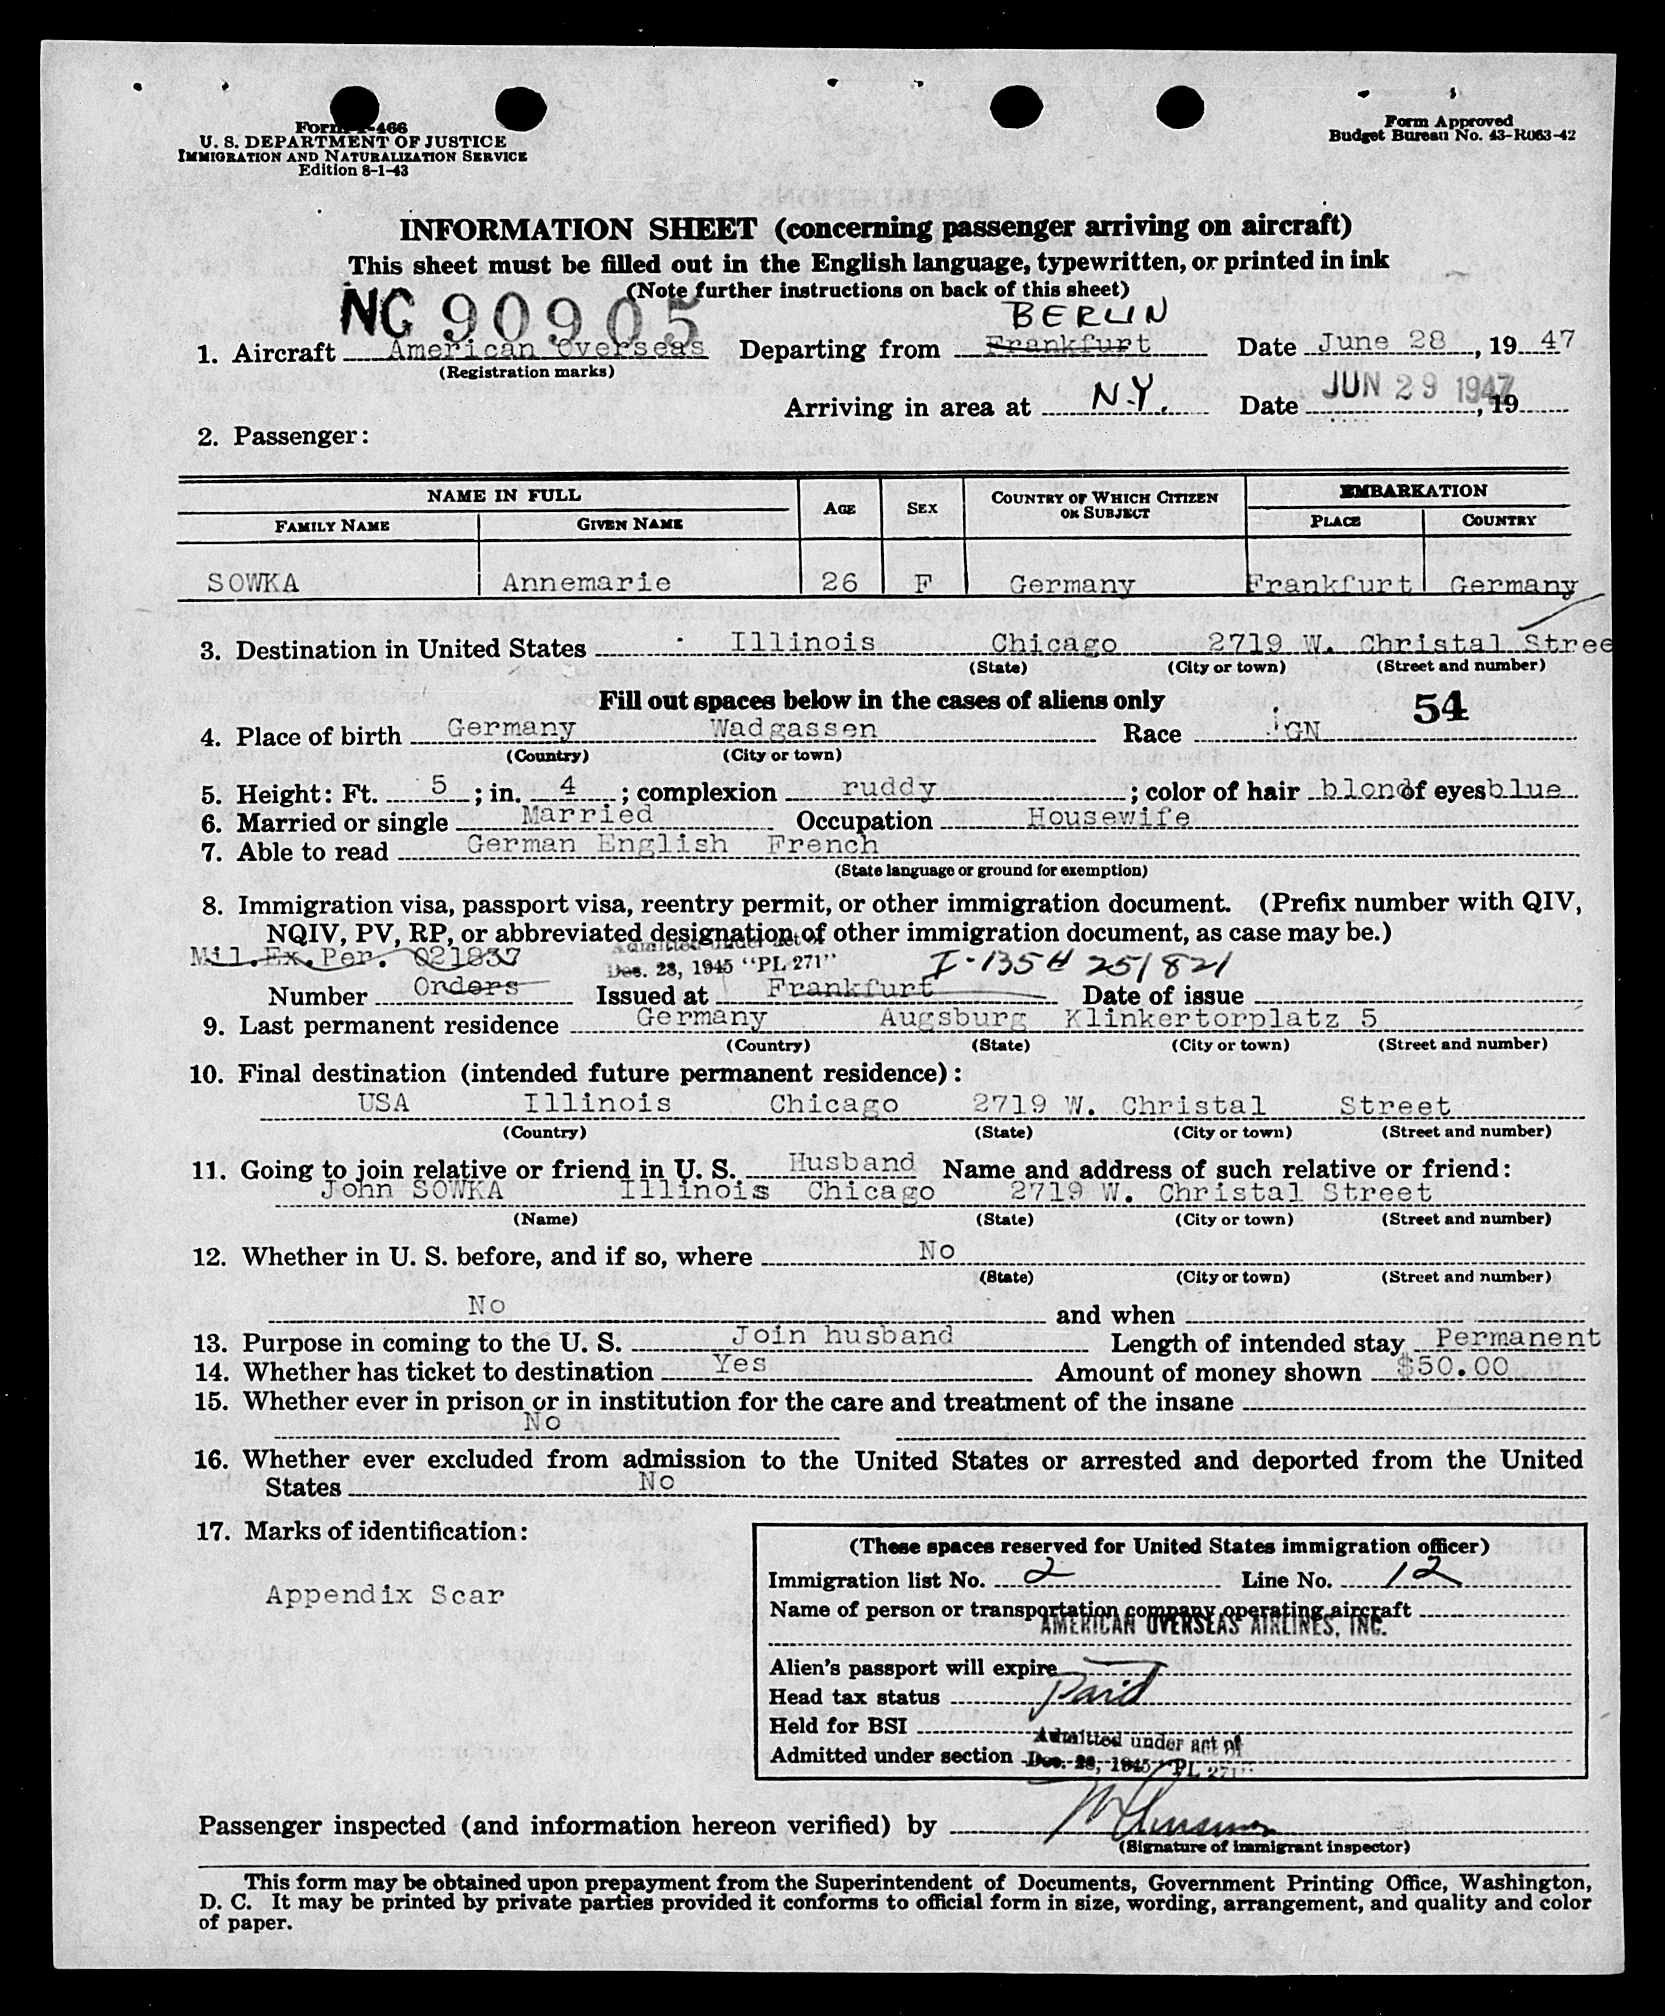 Form I-466
U. S. DEPARTMENT OF JUSTICE
IMMIGRATION AND NATURALIZATION SERVICE
Edition 8-1-43
Form Approved
Budget Bureau No. 43-R063-42
INFORMATION SHEET (concerning passenger arriving on aircraft)
This sheet must be filled out in the English language, typewritten, or printed in ink
(Note further instructions on back of this sheet)
NC 90905 BERLIN
1. Aircraft American Overseas Departing from Frankfurt Date June 28, 1947
(Registration marks)
Arriving in area at N.Y. Date JUN 29 1947, 19
2. Passenger:
NAME IN FULL AGE SEX COUNTRY OF WHICH CITIZEN OR SUBJECT EMBARKATION
FAMILY NAME GIVEN NAME PLACE COUNTRY
SOWKA Annemarie 26 F Germany Frankfurt Germany
3. Destination in United States Illinois Chicago 2719 W. Christal Stree
(State) (City or town) (Street and number)
Fill out spaces below in the cases of aliens only 54
4. Place of birth Germany Wadgassen Race GN
(Country) (City or town)
5. Height: Ft. 5; in. 4; complexion ruddy; color of hair blond of eyes blue
6. Married or single Married Occupation Housewife
7. Able to read German English French
(State language or ground for exemption)
8. Immigration visa, passport visa, reentry permit, or other immigration document. (Prefix number with QIV,
NQIV, PV, RP, or abbreviated designation of other immigration document, as case may be.)
Mil.Ex.Per. 021837 Admitted under act of
Dec. 28, 1945 "PL 271" I-135H 251821
Number Orders Issued at Frankfurt Date of issue
9. Last permanent residence Germany Augsburg Klinkertorplatz 5
(Country) (State) (City or town) (Street and number)
10. Final destination (intended future permanent residence):
USA Illinois Chicago 2719 W. Christal Street
(Country) (State) (City or town) (Street and number)
11. Going to join relative or friend in U. S. Husband Name and address of such relative or friend:
John SOWKA Illinois Chicago 2719 W. Christal Street
(Name) (State) (City or town) (Street and number)
12. Whether in U. S. before, and if so, where No
(State) (City or town) (Street and number)
No and when
13. Purpose in coming to the U. S. Join husband Length of intended stay Permanent
14. Whether has ticket to destination Yes Amount of money shown $50.00
15. Whether ever in prison or in institution for the care and treatment of the insane
No
16. Whether ever excluded from admission to the United States or arrested and deported from the United
States No
17. Marks of identification:
Appendix Scar
(These spaces reserved for United States immigration officer)
Immigration list No. 2 Line No. 12
Name of person or transportation company operating aircraft
AMERICAN OVERSEAS AIRLINES, INC.
Alien's passport will expire
Head tax status Paid
Held for BSI
Admitted under act of
Admitted under section Dec. 28, 1945 "PL 271"
Passenger inspected (and information hereon verified) by
(Signature of immigrant inspector)
This form may be obtained upon prepayment from the Superintendent of Documents, Government Printing Office, Washington,
D. C. It may be printed by private parties provided it conforms to official form in size, wording, arrangement, and quality and color
of paper.